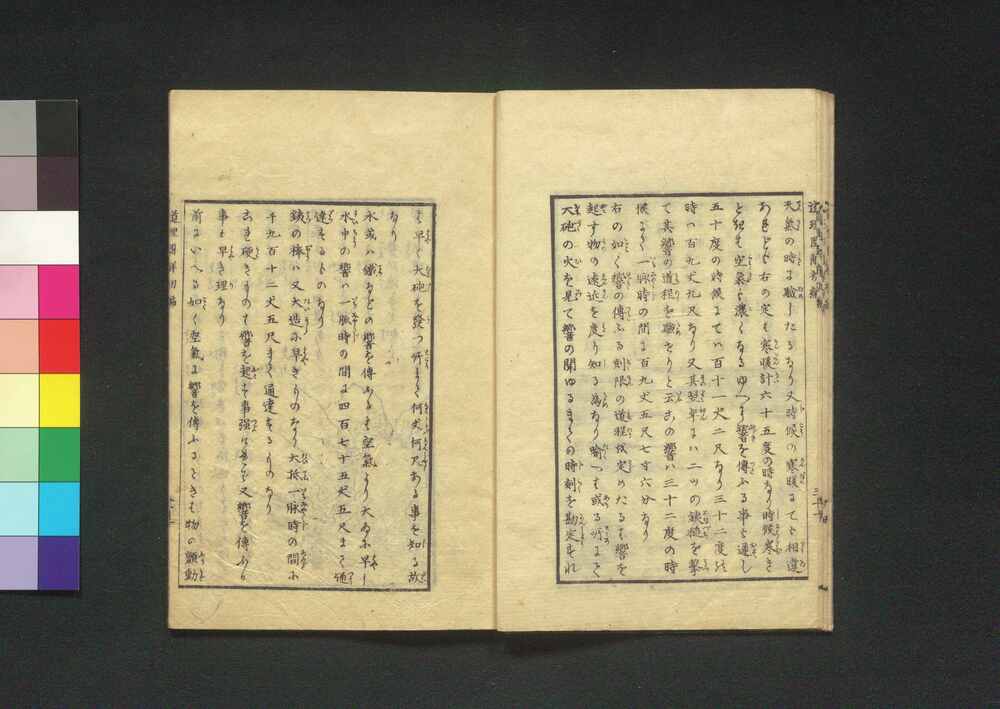 天氣の時に驗したるなり又時候の寒暖にても相違
あれども右の定も寒暖計六十五度の時なり時候寒き
ときは空氣も濃くなるゆへに響を傳ふる事も遲し
五十度の時候にては百十一丈二尺なり三十二度の
時は百九丈九尺なり又其翌年に二ツの鉄砲を撃
て其響の道程を驗せりと云ふの響は三十二度の時
候にて一脉時の間に百九丈五尺七寸六分なり
右の如く響の傳ふる刻限の道程を定めたるは響を
起す物の遠近を度り知る為なり喻へは或る所にて
大砲の火を見て響の聞ゆるまての時刻を勘定すれ
は早く大砲を發つ所まて何丈何尺ある事を知る故
なり
水或は鐵などの響を傳ふるは空氣より大ゐに早し
水中の響は一脉時の間に四百七十五丈五尺まて通
達するものなり
鉄の棒は又大造に早きものなり大抵一脉時の間に
千九百十二丈五尺まて通達するものなり
は硬きものは響を起す事強し又響を傳ふる
事も早き理なり
前にいへる如く空氣に響を傳ふるときは物の顫動
道理圖解初編